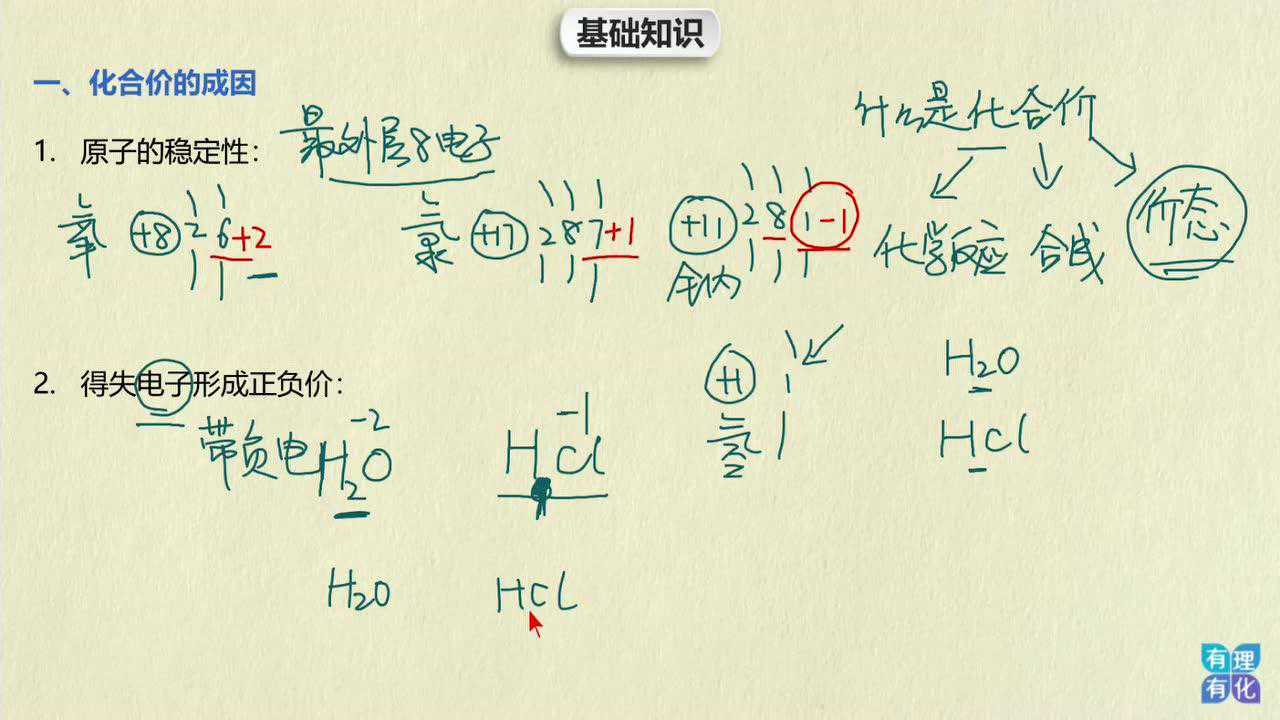 基础知识
一、化合价的成因
什么是化合价
1. 原子的稳定性：最外层8电子
氧 +8 2 6+2
氯 +17 2 8 7+1
+11 2 8 1-1
金钠
化学反应 合成 价态
2. 得失电子形成正负价：
H 1
氢
H₂O
HCl
带负电
-2
H₂O
-1
HCl
H₂O HCl
有理
有化